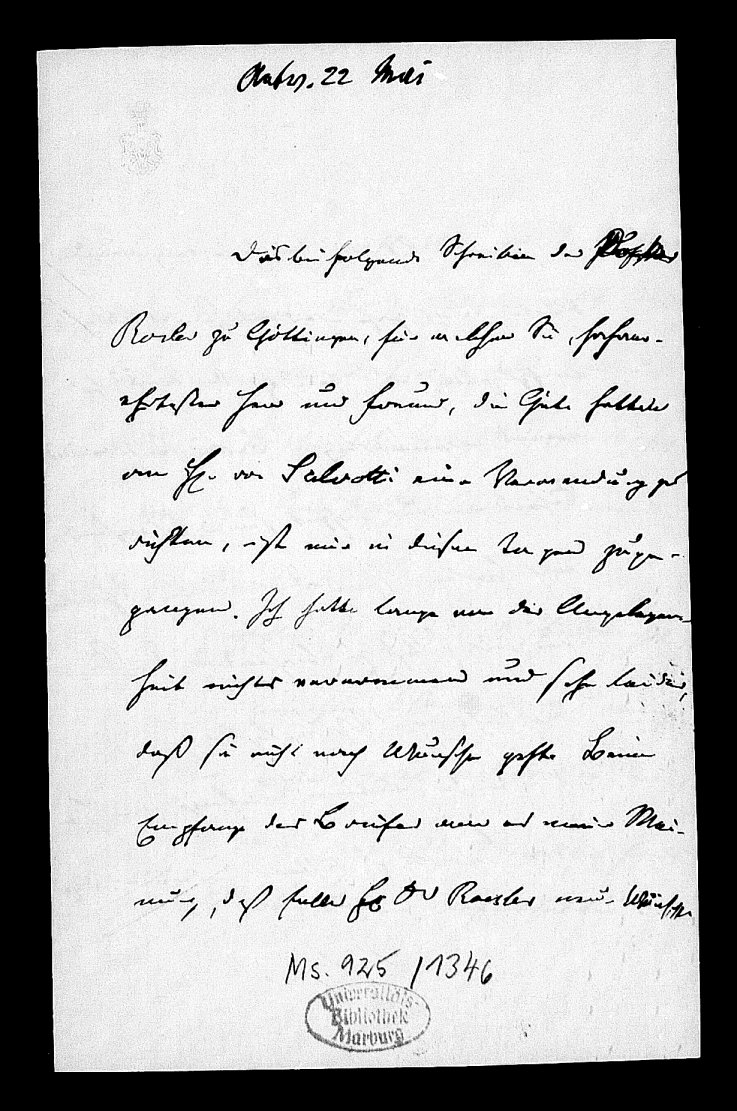 Antw. 22 Mai
Das beifolgende Schreiben des
Roesler zu Göttingen, für welchen Sie, hochver-
ehrtester Herr und Freund, die Güte hatten
an H. von Salvotti eine Verwendung zu
richten, ist mir in diesen Tagen zuge-
gangen. Ich hatte lange von der Angelegen-
heit nichts vernommen und sehe leider,
daß sie nicht nach Wunsche gehe. Beim
Empfange des Briefes war es meine Mei-
nung, daß falls Dr Roesler neue Wünsche
Ms. 925 /1346
Universitäts-
Bibliothek
Marburg